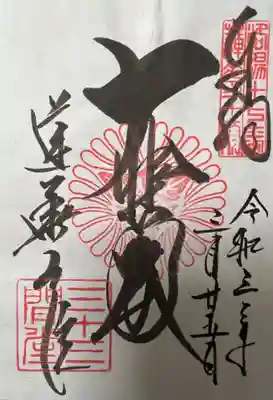 奉拝
令和三年
三月廿五日
大悲殿
蓮華王院
三十三間堂